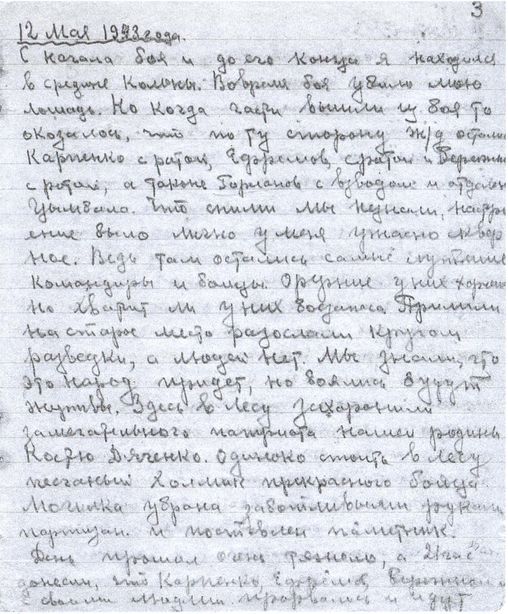 3
12 Мая 1943 года.
С начала боя и до его конца я находился
в средине Колоны. Вовремя боя убило мою
лошадь. Но когда части вышли из боя то
оказалось, что по ту сторону ж/д остались
Карпенко с ротой, Ефремов с ротой и
с ротой, а также с взводом и
Что сними мы не знали,
ение было лично у меня ужасно сквер
ное. Ведь там остались самые лутшие
командиры и бойцы. Оружие у них хорошее
но хватит ли у них боезапаса. Пришли
на старое место разослали кругом
разведки, а людей нет. Мы знали, что
это народ придет, но боялись будут
жертвы. Здесь в лесу захоронили
замечательного патриота нашей родины
Костю Дяченко. Одиноко стоит в лесу
песчаный холмик прекрасного бойца
Могилка убрана заботливыми руками
партизан. и поставлен памятник.
День прошол очень тяжело, а 21 час
донесли, что Карпенко, Ефремов
с своими людьми прорвались и идут